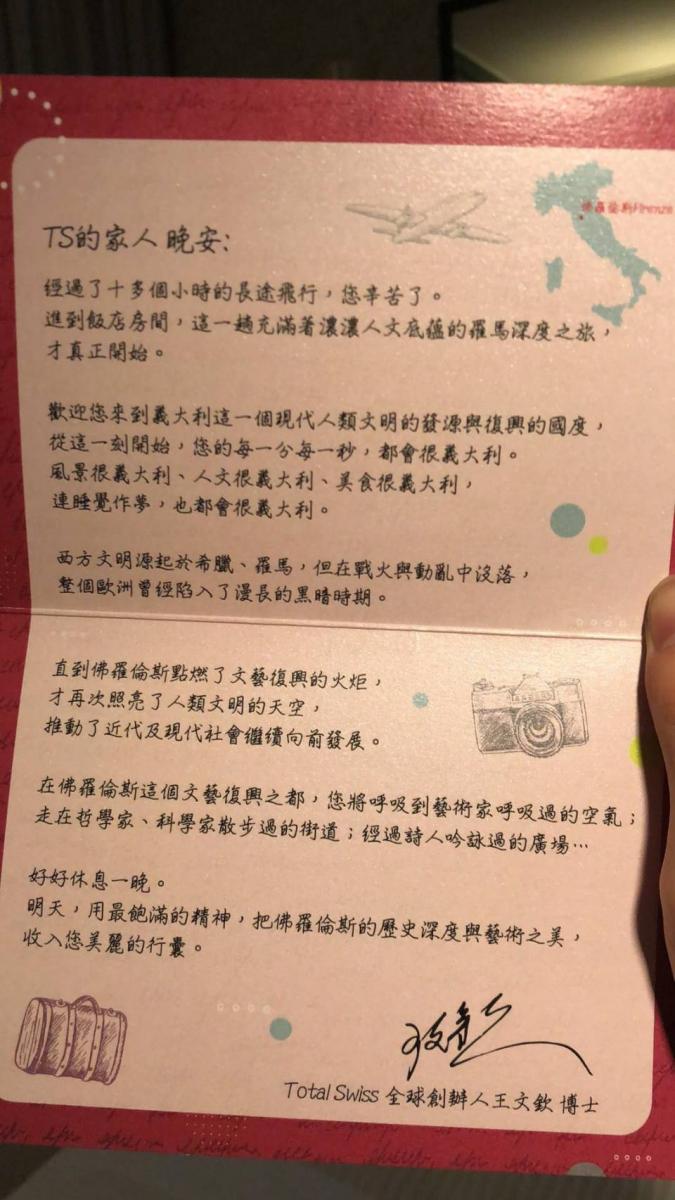 佛羅倫斯Firenze
TS的家人 晚安:
經過了十多個小時的長途飛行，您辛苦了。
進到飯店房間，這一趟充滿著濃濃人文底蘊的羅馬深度之旅，
才真正開始。
歡迎您來到義大利這一個現代人類文明的發源與復興的國度，
從這一刻開始，您的每一分每一秒，都會很義大利。
風景很義大利、人文很義大利、美食很義大利，
連睡覺作夢，也都會很義大利。
西方文明源起於希臘、羅馬，但在戰火與動亂中沒落，
整個歐洲曾經陷入了漫長的黑暗時期。
直到佛羅倫斯點燃了文藝復興的火炬，
才再次照亮了人類文明的天空，
推動了近代及現代社會繼續向前發展。
在佛羅倫斯這個文藝復興之都，您將呼吸到藝術家呼吸過的空氣；
走在哲學家、科學家散步過的街道；經過詩人吟詠過的廣場…
好好休息一晚。
明天，用最飽滿的精神，把佛羅倫斯的歷史深度與藝術之美，
收入您美麗的行囊。
Total Swiss 全球創辦人王文欽 博士